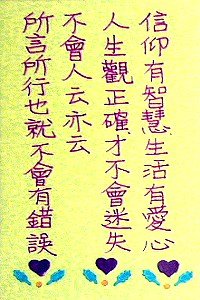 信仰有智慧生活有愛心
人生觀正確才不會迷失
不會人云亦云
所言所行也就不會有錯誤